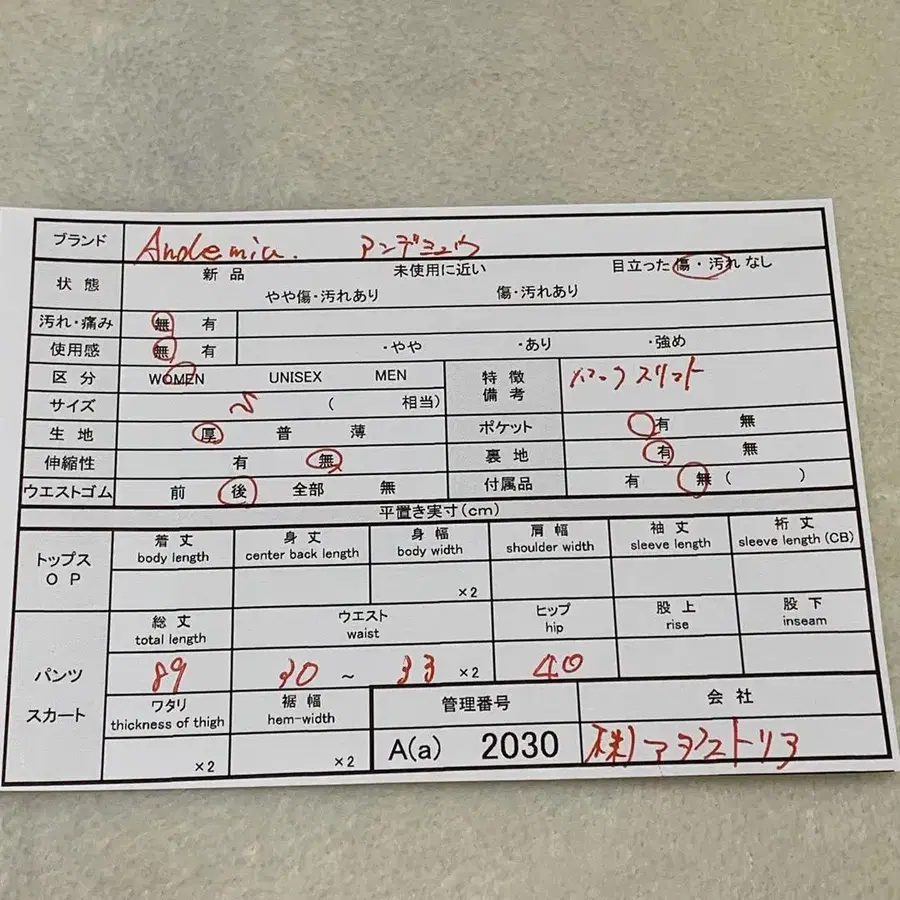 ブランド Andemiu. アンデミュウ
状態 新品 未使用に近い 目立った傷・汚れなし
やや傷・汚れあり 傷・汚れあり
汚れ・痛み 無 有
使用感 無 有 ・やや ・あり ・強め
区分 WOMEN UNISEX MEN
特徴
備考
バックスリット
サイズ ( 相当)
生地 厚 普 薄
ポケット 有 無
伸縮性 有 無
裏地 有 無
ウエストゴム 前 後 全部 無
付属品 有 無 ( )
平置き実寸(cm)
トップス
OP
着丈
body length
身丈
center back length
身幅
body width
肩幅
shoulder width
袖丈
sleeve length
裄丈
sleeve length (CB)
×2
パンツ
スカート
総丈
total length
ウエスト
waist
ヒップ
hip
股上
rise
股下
inseam
89 30 ~ 33 ×2 40
ワタリ
thickness of thigh
裾幅
hem-width
×2 ×2
管理番号
A(a) 2030
会社
株)